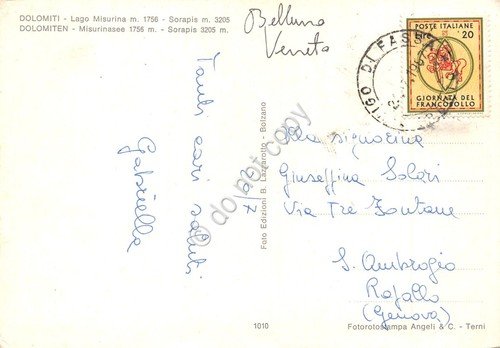 DOLOMITI - Lago Misurina m. 1756 - Sorapis m. 3205
DOLOMITEN - Misurinasee 1756 m. - Sorapis m. 3205
Belluno
Veneto
POSTE ITALIANE
20
GIORNATA DEL
FRANCOBOLLO
VIGO DI FASSA
Tanti cari saluti
Gabriella
26/7
Foto Edizioni B. Lazzarotto - Bolzano
do not copy
Alla Signorina
Giuseffina Solari
Via Tre Fontane
S. Ambrogio
Rapallo
(Genova)
1010
Fotorotostampa Angeli & C. - Terni